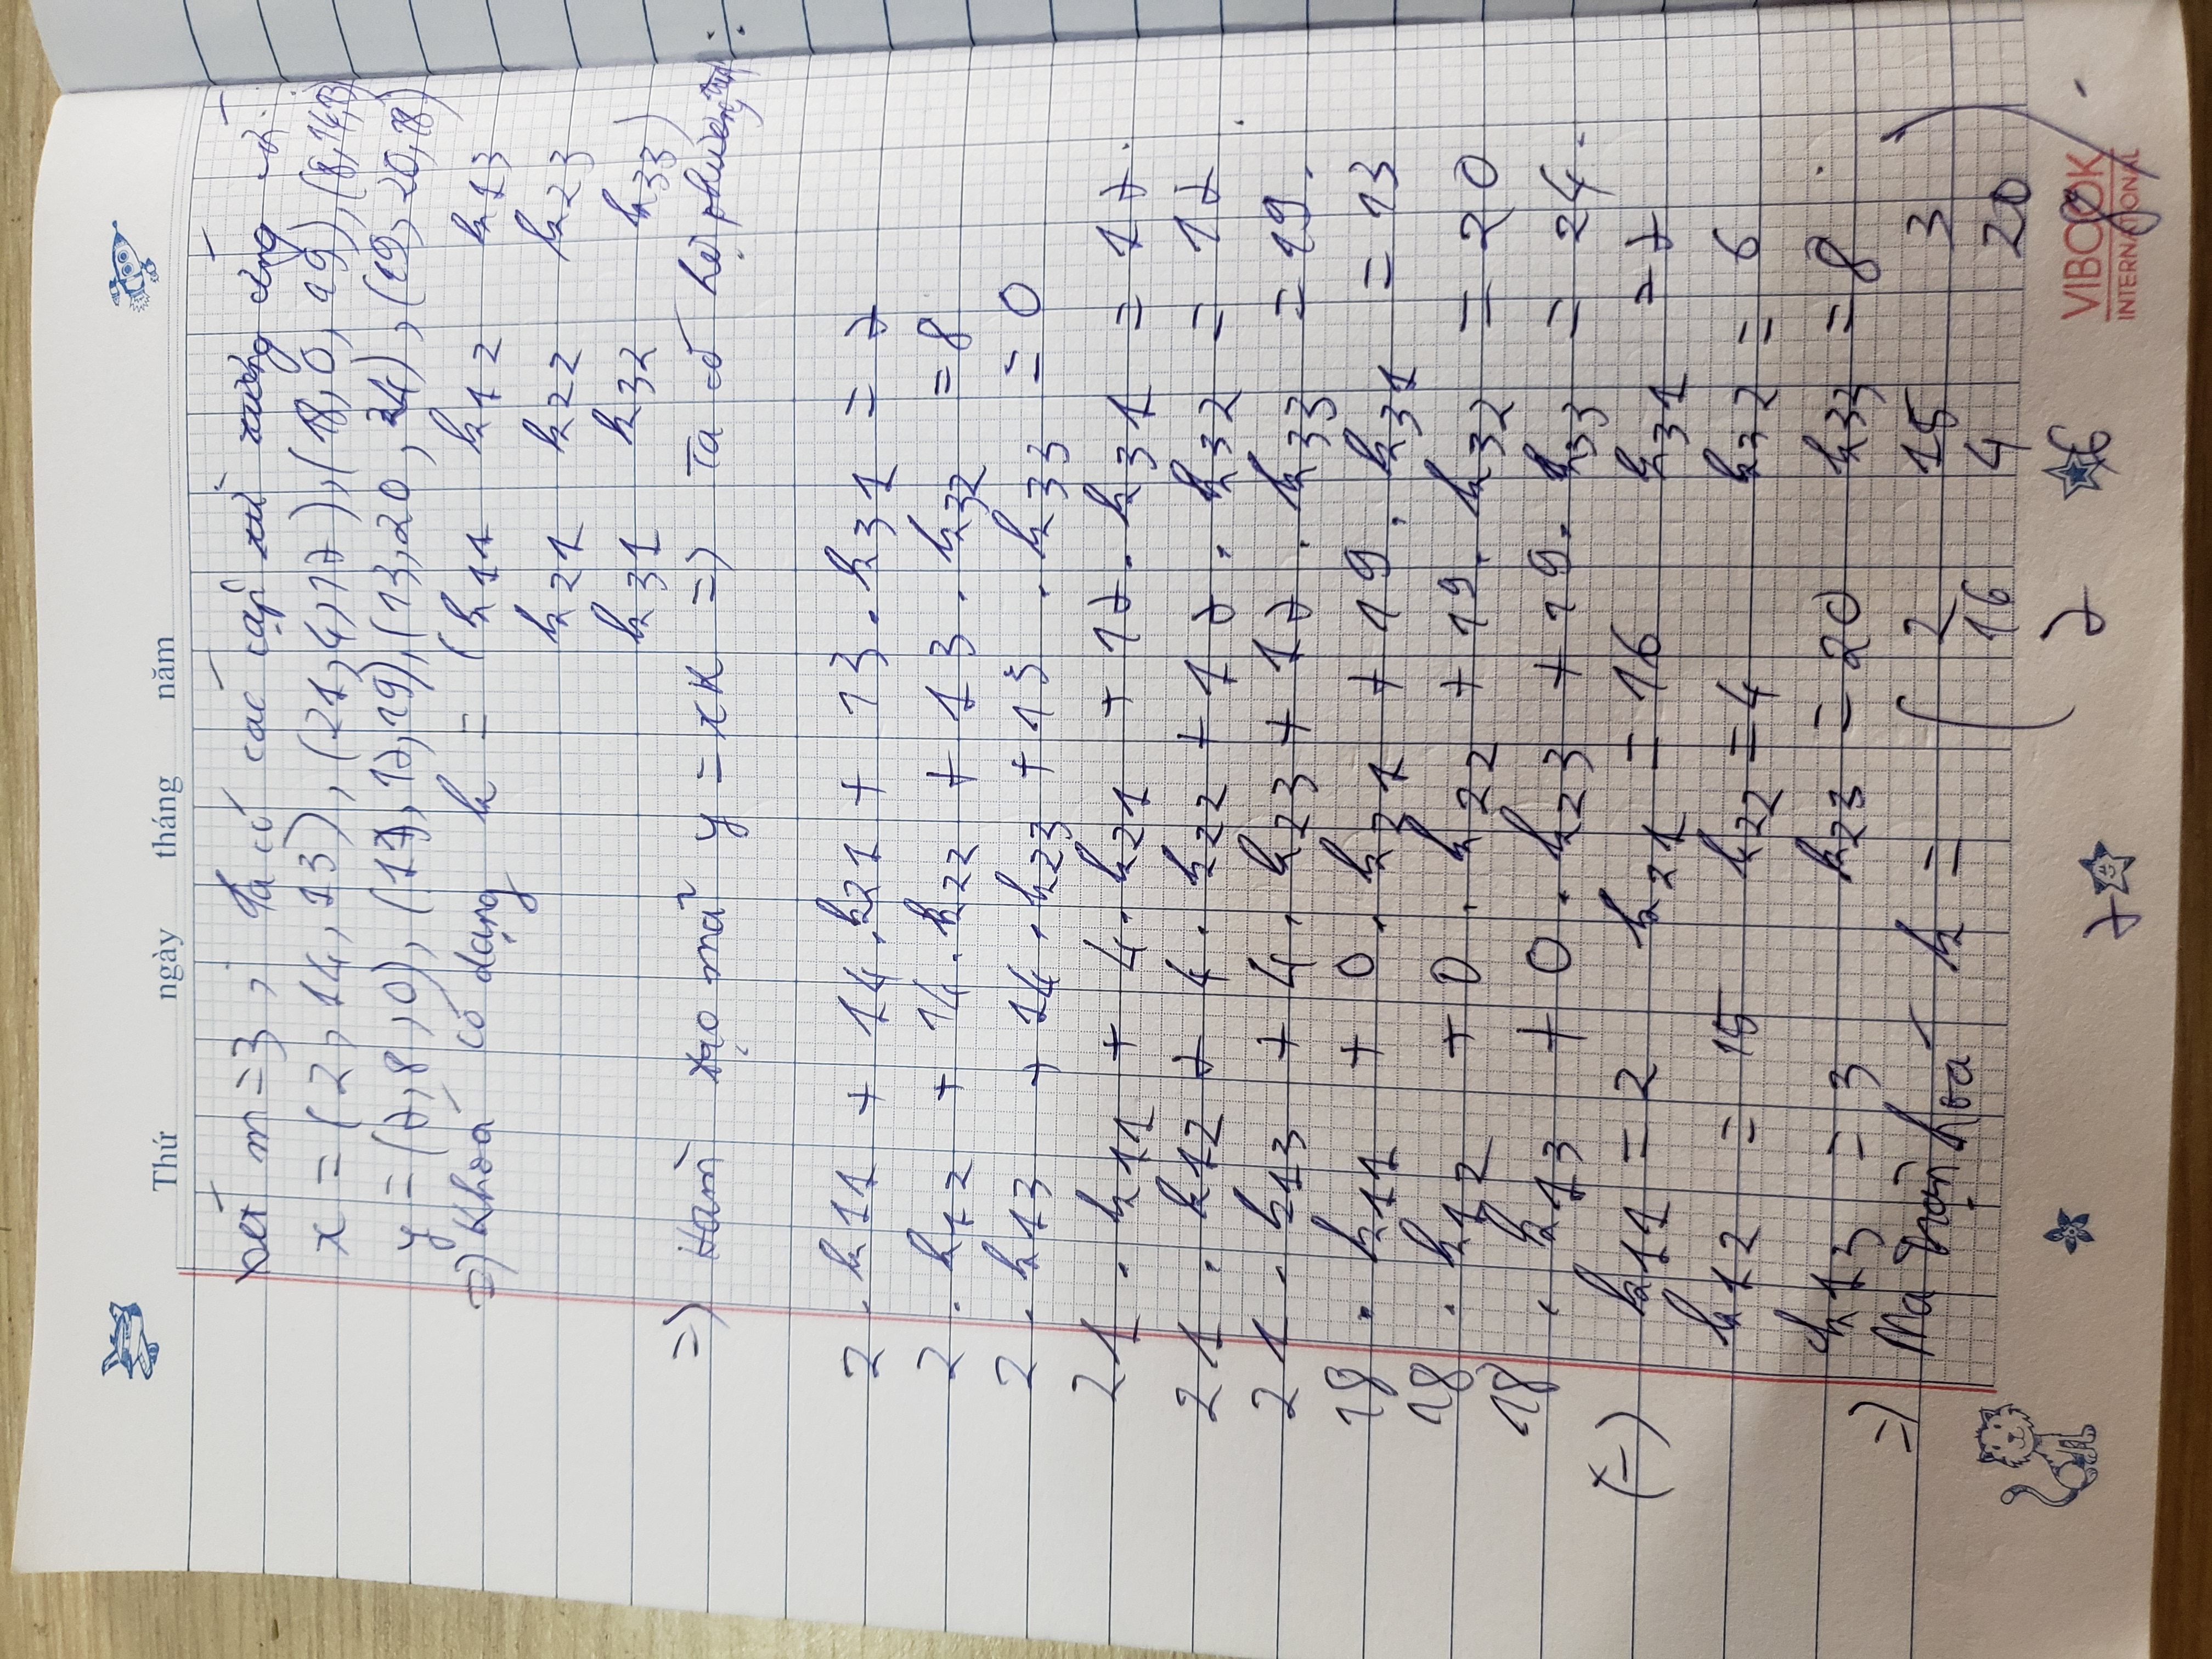 Thứ ngày tháng năm
Xét m = 3, ta có các cặp tương ứng
x = (2, 14, 13), (21, 4, 17), (18, 0, 19), (8, 14, 13)
y = (7, 8, 0), (17, 17, 19), (13, 20, 24), (19, 20, 18)
=> Khoá có dạng k = (k11 k12 k13
k21 k22 k23
k31 k32 k33)
=> Hàm tạo mã y = xK => Ta có hệ phương trình :
2 . k11 + 14 . k21 + 13 . k31 = 7
2 . k12 + 14 . k22 + 13 . k32 = 8
2 . k13 + 14 . k23 + 13 . k33 = 0
21 . k11 + 4 . k21 + 17 . k31 = 17.
21 . k12 + 4 . k22 + 17 . k32 = 17.
21 . k13 + 4 . k23 + 17 . k33 = 19.
18 . k11 + 0 . k21 + 19 . k31 = 13
18 . k12 + 0 . k22 + 19 . k32 = 20
18 . k13 + 0 . k23 + 19 . k33 = 24.
(-) k11 = 2 k21 = 16 k31 = 7
k12 = 15 k22 = 4 k32 = 6
k13 = 3 k23 = 20 k33 = 8.
=> Ma trận khoá k = ( 2 15 3
16 4 20
7 6 8 ).
7
VIBOOK
INTERNATIONAL